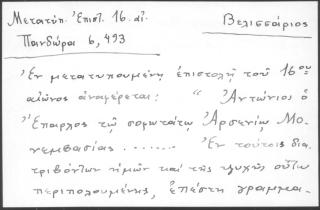 Μετατύπ. Ἐπιστ. 16. αἰ.
Πανδώρα 6, 493
Βελισσάριος
Ἐν μετατυπουμένῃ ἐπιστολῇ τοῦ 16ου
αἰῶνος ἀναφέρεται: "Ἀντώνιος ὁ
Ἔπαρχος τῷ σοφωτάτῳ Ἀρσενίῳ, Μο-
νεμβασίας ....... Ἐν τούτοις δια-
τριβόντων ἡμῶν καὶ τῆς ψυχῆς οὕτω
περιπολουμένης, ἐπέστη γραμμα-